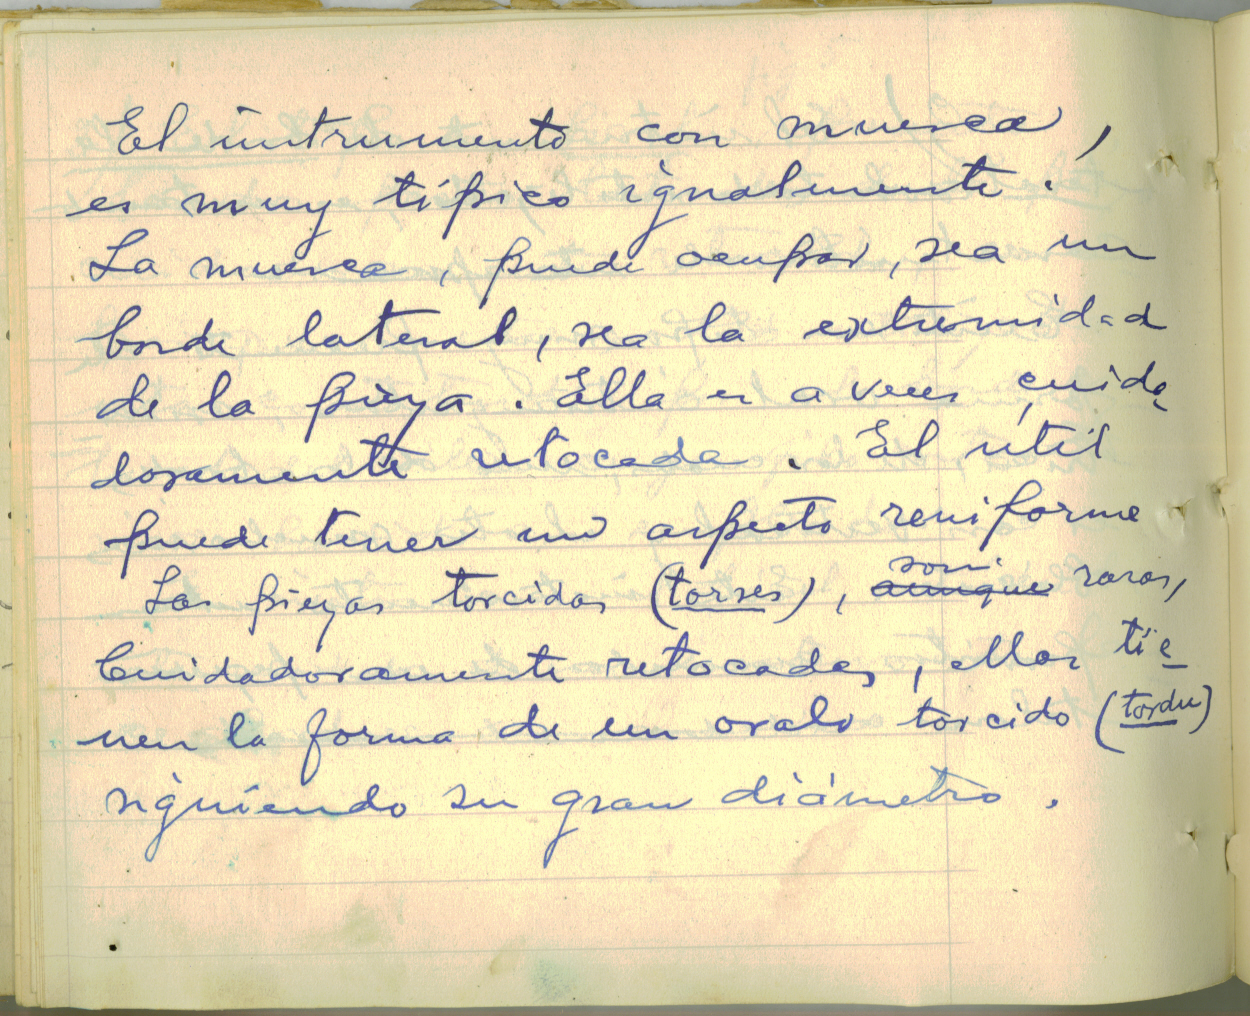 El instrumento con muesca,
es muy típico igualmente.
La muesca, puede ocupar, sea un
borde lateral, sea la extremidad
de la pieza. Ella es a veces cuida
dosamente retocada. El útil
puede tener un aspecto reniforme
Las piezas torcidas (torses), son aunque raras,
Cuidadosamente retocadas, ellas tie-
nen la forma de un ovalo torcido (tordu)
siguiendo su gran diámetro.